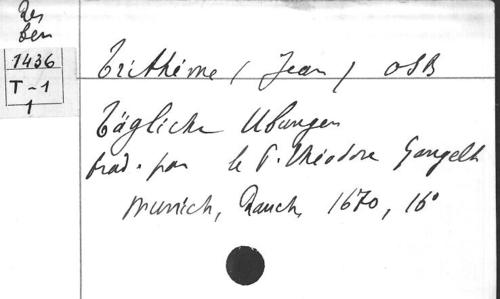 Res
Ben
1436
T-1
1
Trithème (Jean) OSB
Tägliche Ubungen
trad. par le P. Théodore Gangelt
Munich, Rauch, 1670, 16°